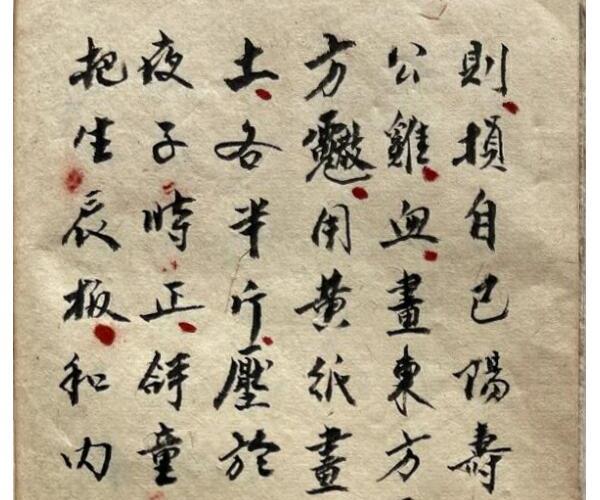 則損自己陽壽
公雞血畫東方
方用黃紙畫
土各半斤壓於
夜子時正童
把生辰板和内